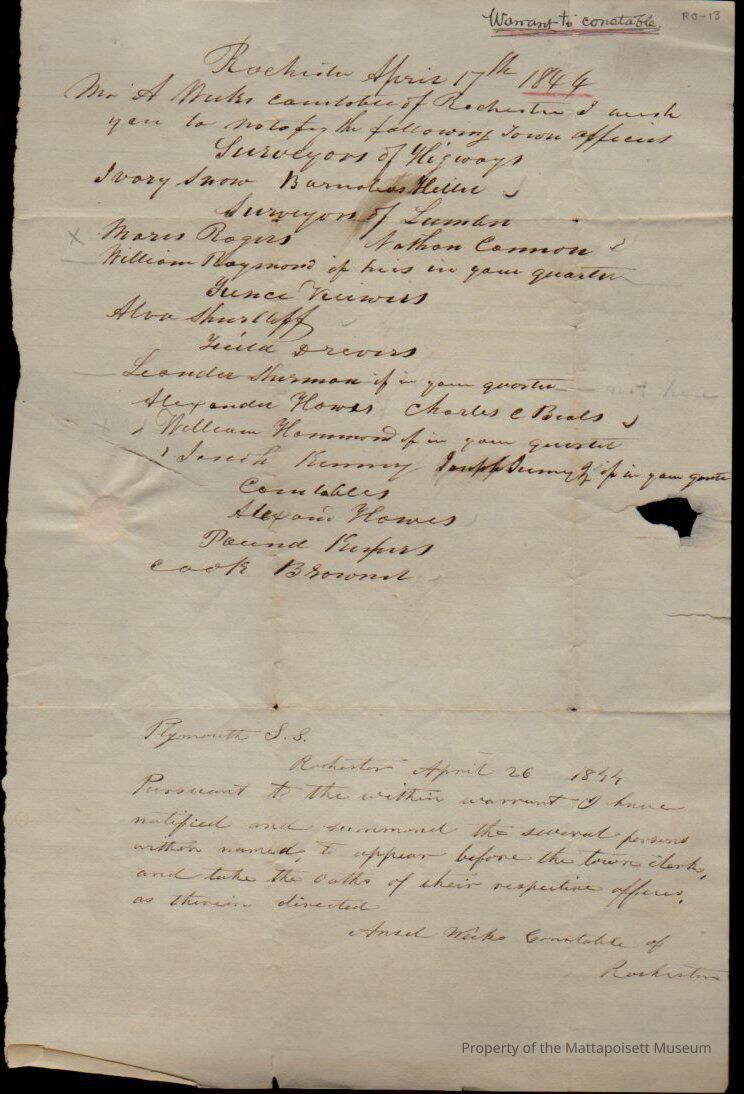 Warrant to constable.
RO-13
Rochester April 17th 1844
Mr A Weeks constable of Rochester I wish
you to notofy the following Town officers
Surveyors of Higways
Ivory Snow Barnabas Hiller
Surveyors of Lumau
Mores Rogers Nathan Cannon
William Raymond if heis in your quarter
Fence Viewers
Alva Shurtleff
Feild Drivers
Leander Sherman if in your quarter
Alexander Howes Charles C Beals
William Hammond if in your quarter
Joseph Kenney if in your quarter
Constables
Alexand Howes
Pound Kepers
Cook Brownel
Plymouth S.S.
Rochester April 26 1844
Pursuant to the within warrant I have
notified and summond the several persons
within named, to appear before the town clerk,
and take the oaths of their respective offices,
as therein directed
Ansel Weeks Constable of
Rochester
Property of the Mattapoisett Museum